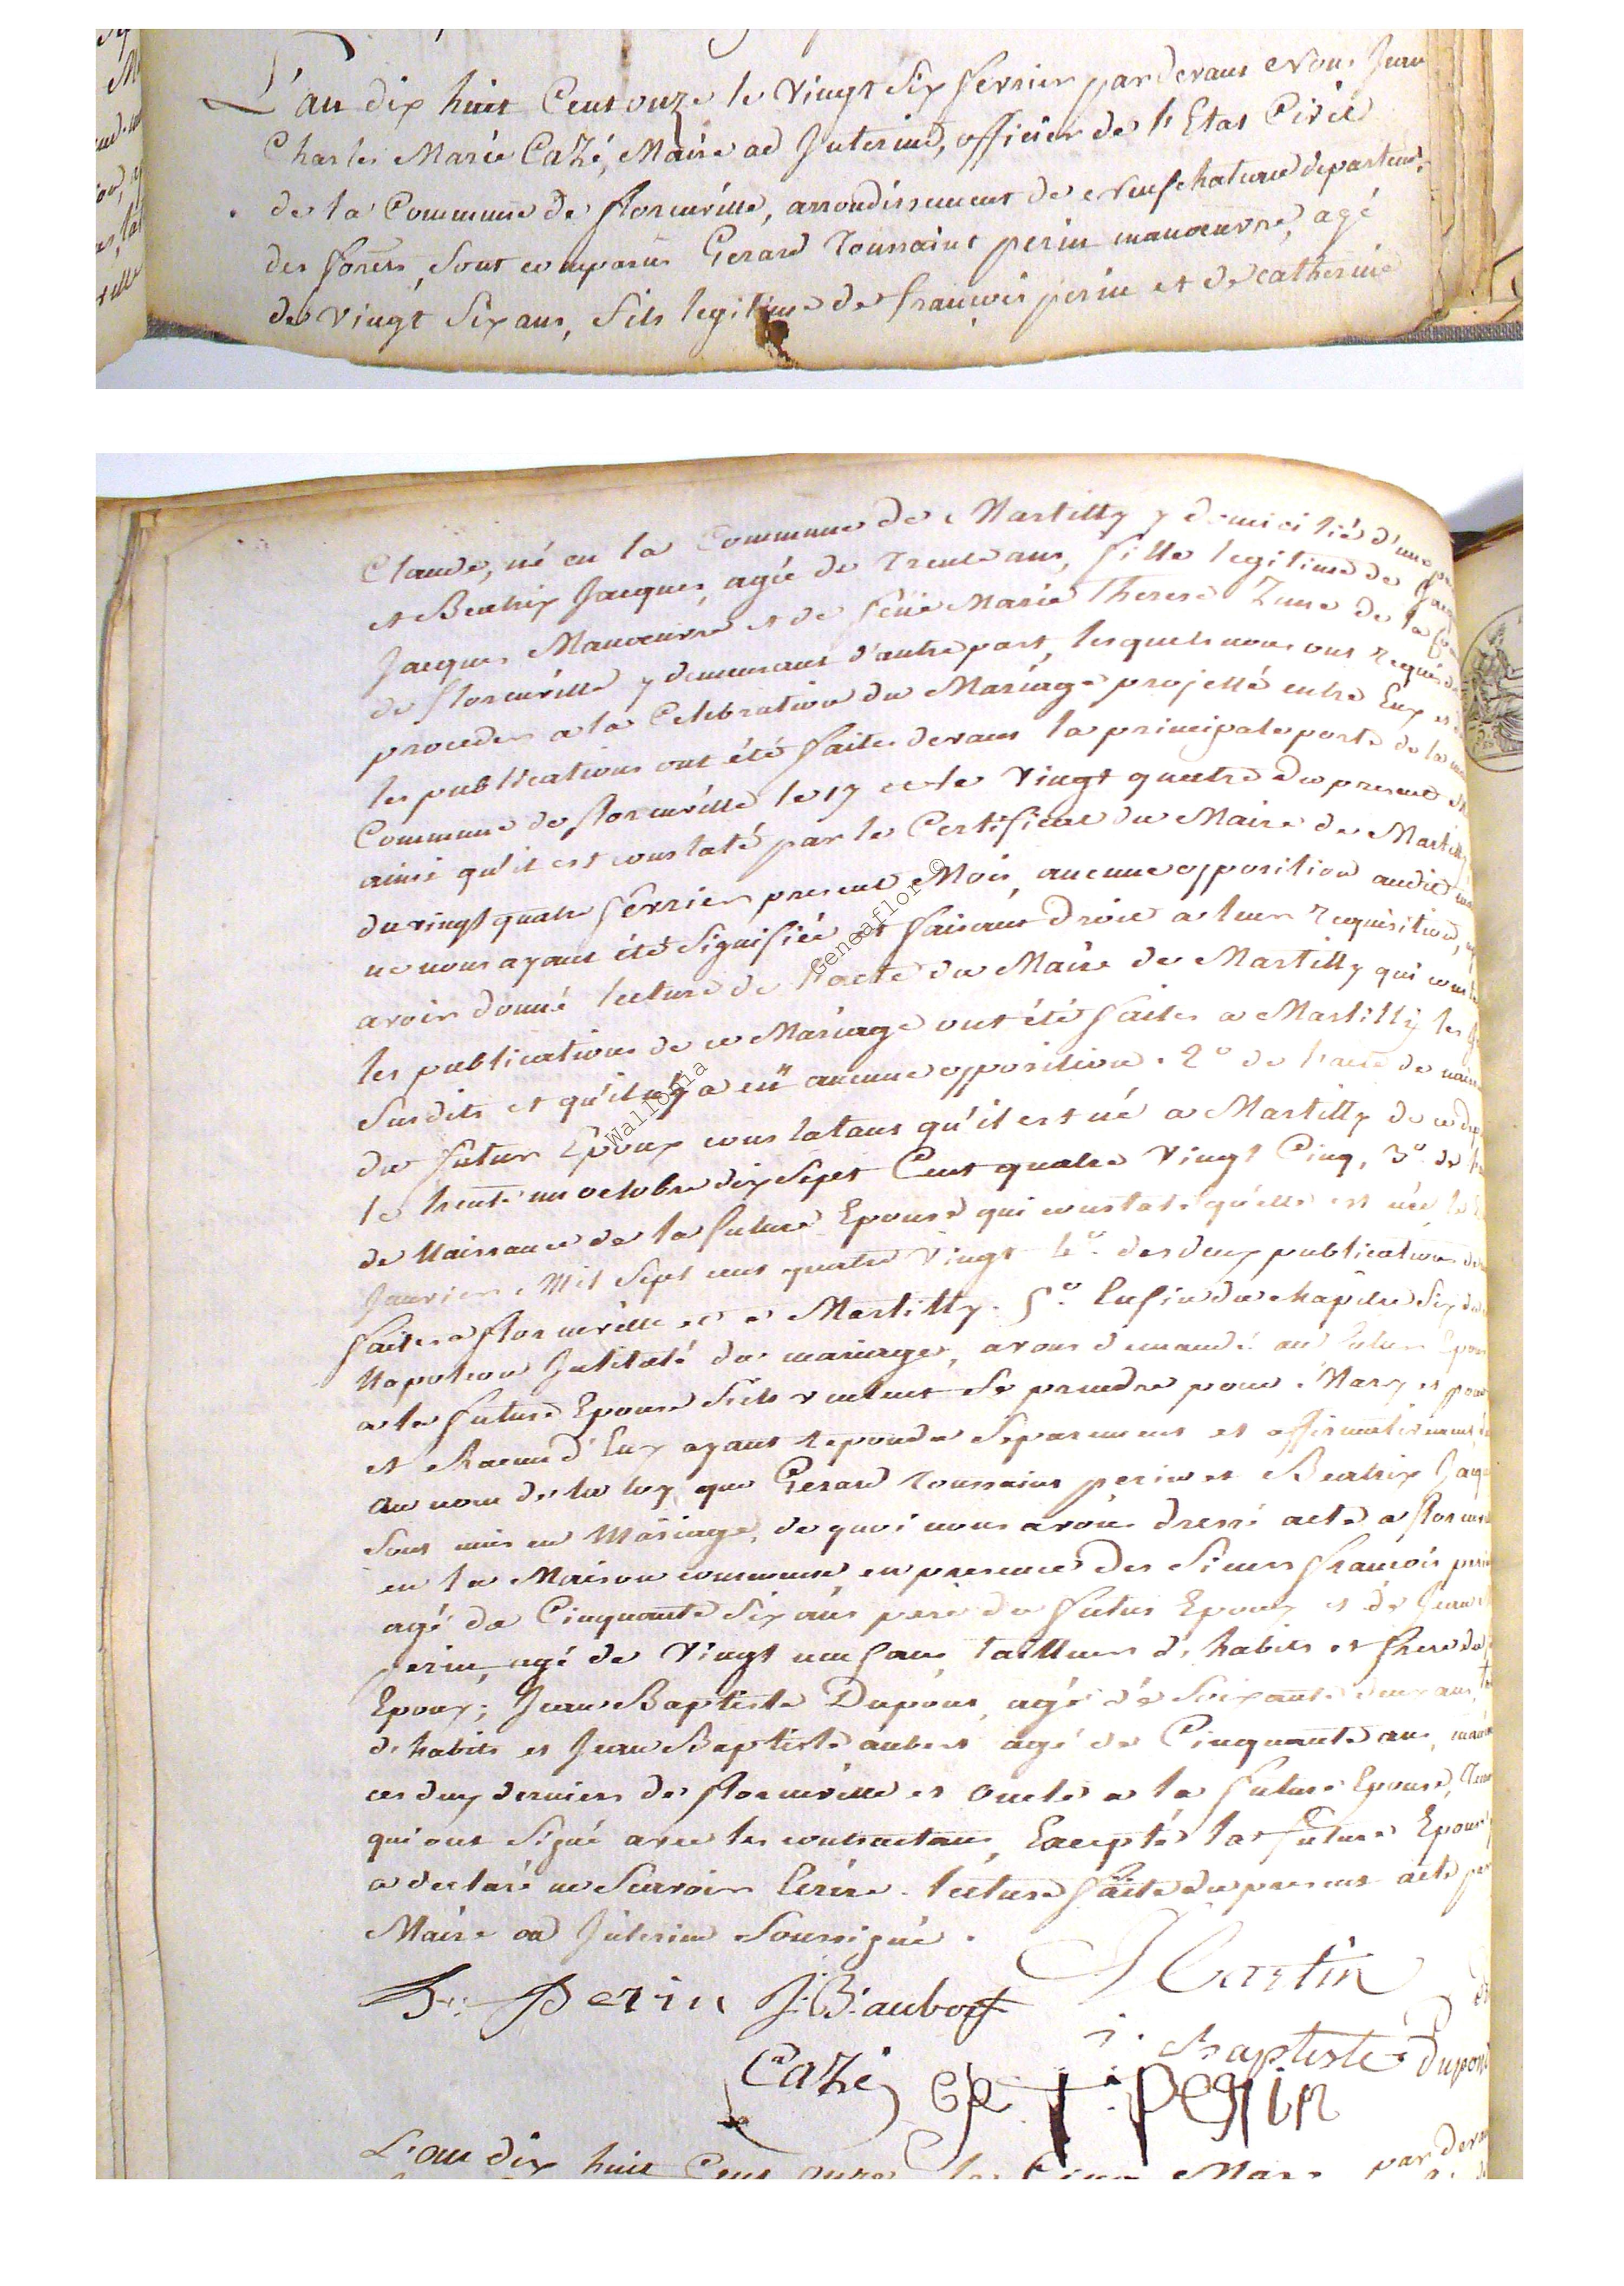 L'an dix huit Cent onze le Vingt Six fevrier par devant Nous Jean
Charles Marie Cazé, Maire ad Interim, officier de l'Etat Civil
de la Commune de florenville, arrondissement de Neufchateau departem.
des forets, sont comparus Gerard Toussaint perin manœuvre, agé
de Vingt Six ans, fils legitime de francois perin et de catherine
Claude, né en la Commune de Martilly y domicilié d'une
et Beatrix Jacques, agée de Trente ans, fille legitime de
Jacques Manœuvre et de feüe Marie Therese Zune de la
de florenville y demeurant d'autre part, lesquels nous ont requis de
proceder a la Celebration du Mariage projetté entre Eux et
les publications ont été faites devant la principale porte de la
Commune de florenville le 17 et le Vingt quatre du present
ainsi qu'il est constaté par le Certificat du Maire de Martilly
du vingt quatre fevrier present Mois, aucune opposition audit
ne nous ayant été Signifiée et faisant Droit a leur requisition,
avoir donné lecture de l'acte du Maire de Martilly qui
les publications de ce Mariage ont été faites a Martilly les
Susdits et qu'il n'y a eü aucune opposition. 2° de l'acte de
du futur Epoux constatant qu'il est né a Martilly de
le trente un octobre dix Sept Cent quatre Vingt Cinq, 3° de
de Naissance de la future Epouse qui constate qu'elle est née le
Janvier Mil Sept cent quatre Vingt 4° des deux publications
faites a florenville et a Martilly. 5° Enfin du chapitre Six du
Napoleon Intitulé du mariage, avons demandé au futur Epoux
a la future Epouse S'ils veulent Se prendre pour Mary et pour
et chacun d'Eux ayant repondu Separement et affirmativement,
au nom de la loy que Gerard Toussaint perin et Beatrix
Sont unis en Mariage, de quoi nous avons dressé acte a
en la Maison commune, en presence des Sieurs francois perin
agé de Cinquante Six ans pere du futur Epoux et de Jean
perin, agé de Vingt neuf ans, tailleur d'habits et frere du
Epoux; Jean Baptiste Dupont, agé de Soixante deux ans,
d'habits et Jean Baptiste aubert agé de Cinquante ans,
ces deux derniers de florenville et oncles a la future Epouse,
qui ont Signé avec les contractans, Excepté la future Epouse
a declaré ne Scavoir Ecrire. lecture faite du present acte par
Maire ad Interim Soussigné.
Perin J:B: aubert Martin
Baptiste Dupont
Cazé GR T: perin
L'an dix huit Cent onze le Cinq Mars par devant
Wallonia Geneaflor ©